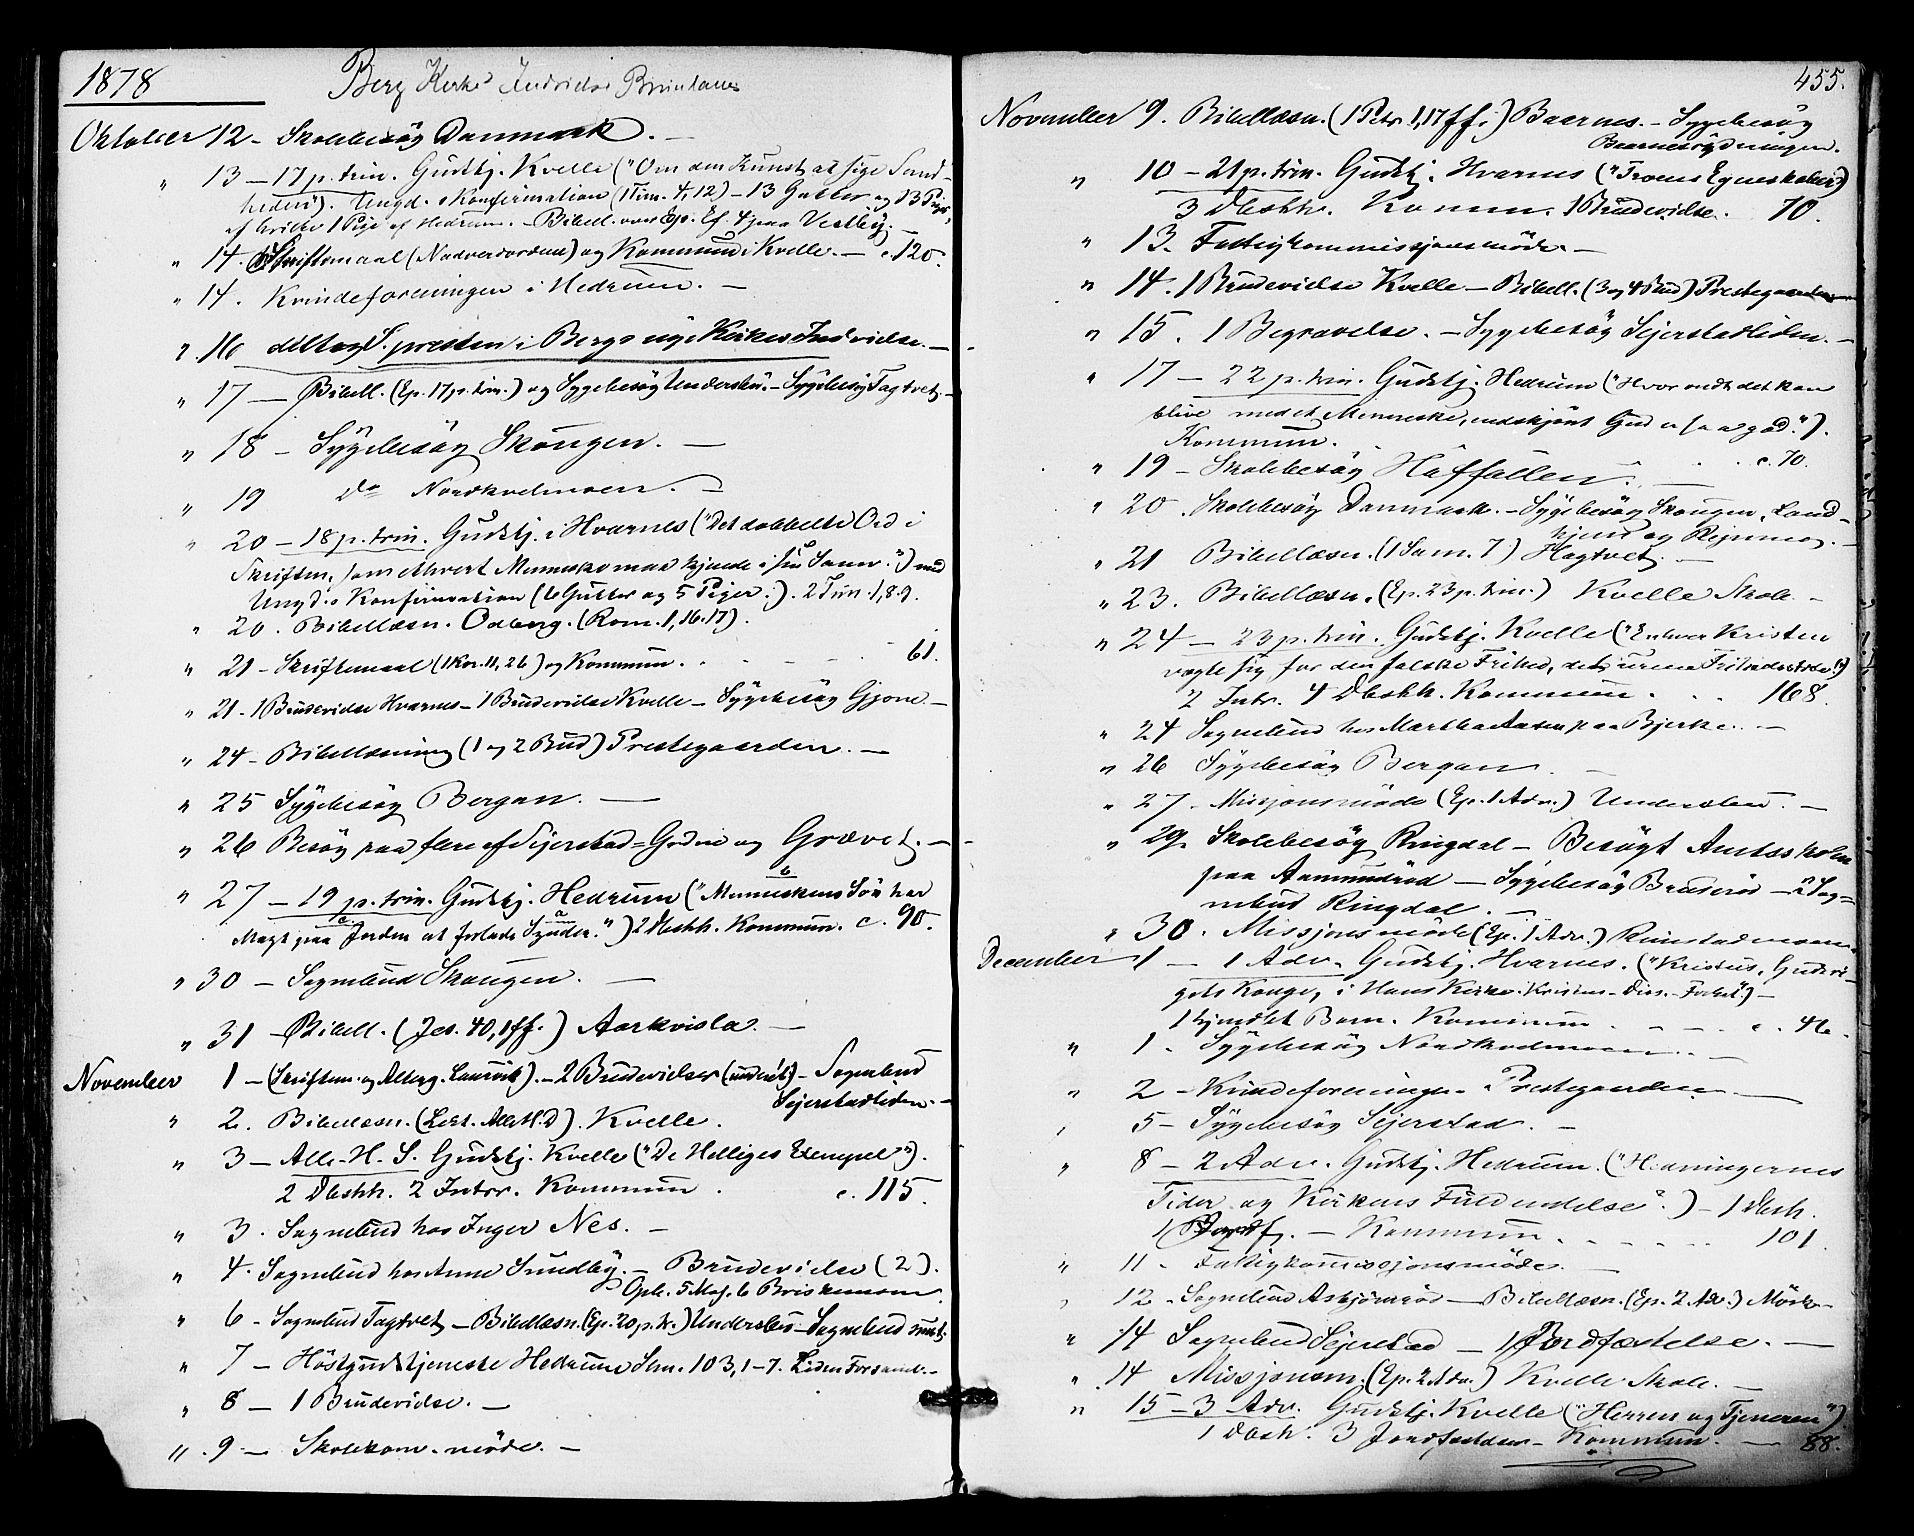 1878
Berg Kirkes Indvielse
Oktober 12 - Skolebesög Danmark. -
" 13 - 17 p. trin. Gudstj. Kvelle ("Om den Kunst at sige Sand-
heden"). Ungd. Konfirmation (1 Tim. 4,12) - 13 Gutter og 13 Piger,
af hvilke 1 Pige af Hedrum. - Bibell. over Ep. Ef. 4 paa Vestby. -
" 14. Skriftemaal (Nadverordene) og Kommun. i Kvelle. - c. 120.
" 14. Kvindeforeningen i Hedrum. -
" 16 deltog S. presten i Bergs nye Kirkes Indvielse. -
" 17 - Bibell. (Ep. 17 p. trin.) og Sygebesög Undersbo. - Sygebesög Tagtvet. -
" 18 - Sygebesög Skougen. -
" 19 Do Nordkvelmoen. -
" 20 - 18 p. trin. Gudstj. i Hvarnes ("Det dobbelte Ord i
Skriften, som ethvert Menneske maa kjende i sin Sanne.") med
Ungd. Konfirmation (6 Gutter og 5 Piger.). 2 Tim. 1,8.9.
" 20. Bibellæsn. Odberg. (Rom. 1,16.17).
" 21 - Skriftemaal (1 Kor. 11,26) og Kommun. 61.
" 21 - 1 Brudevielse Hvarnes - 1 Brudevielse Kvelle - Sygebesög Gjone -
" 24 - Bibellæsning (1 og 2 Bud) Prestegaarden. -
" 25 Sygebesög Bergan. -
" 26 Besög paa flere af Sjerstad-Godene og Grævet. -
" 27 - 19 p. trin. Gudstj. Hedrum ("Menneskens Sön har
Magt paa Jorden at forlade Synder.") 2 Dbshh. Kommun. c. 90.
" 30 - Sognebud Skougen. -
" 31 - Bibell. (Jes. 40,1 ff.) Aarkvisla. -
November 1 - (Skriftem. og Alterg. Laurvik). - 2 Brudevielser - Sognebud
Sejerstadliden. -
" 2. Bibellæsn. (Lekt. Alleh. D). Kvelle.
" 3 - Alle-H. S. Gudstj. Kvelle ("De Helliges Exempel").
2 Dbshh. 2 Intr. Kommun. c. 115.
" 3. Sognebud hos Inger Nes. -
" 4. Sognebud hos Anne Sundby. - Brudevielse (2).
Opb. 5 Mos. 6 Briskemoen.
" 6 - Sognebud Tagtvet - Bibellæsn. (Ep. 20 p. tr.) Undersbo - Sognebud
" 7 - Höstgudstjeneste Hedrum Slm. 103,1-7. Liden Forsaml. -
" 8 - 1 Brudevielse. -
" 9 - Skolekom. möde. -
455.
November 9. Bibellæsn. (1 Petr. 1,17 ff.) Baernes. - Sygebesög
" 10 - 21 p. trin. Gudstj. Hvarnes ("Troens Egenskaber")
3 Dbshh. Komm. 1 Brudevielse. 70.
" 13. Fattigkommissjonsmöde. -
" 14. 1 Brudevielse Kvelle - Bibell. (3 og 4 Bud) Prestegaarden
" 15. 1 Begravelse. - Sygebesög Sejerstadliden. -
" 17 - 22 p. trin. Gudstj. Hedrum ("Hvor ondt det kan
blive med et Menneske, endskjönt Gud er saa god.").
Kommun. c. 70.
" 19 - Skolebesög Haffallen. -
" 20. Skolebesög Danmark. - Sygebesög Skougen, Land-
" 21 Bibellæsn. (1 Sam. 7) Hagtvet. -
" 23. Bibellæsn. (Ep. 23 p. trin.) Kvelle Skole -
" 24 - 23 p. trin. Gudstj. Kvelle ("Enhver Kristen
vogte sig for den falske Frihed,
2 Intr. 4 Dbshh. Kommun. 168.
" 24 Sognebud hos Martha Aasen paa Bjerke. -
" 26 Sygebesög Bergan. -
" 27. Missjonsmöde (Ep. 1 Adv.) Undersbo. -
" 29. Skolebesög Ringdal - Besögt Amtsskolen
paa Aamundröd - Sygebesög Bruseröd - 2 Sog-
nebud Ringdal. -
" 30. Missjonsmöde (Ep. 1 Adv.) Rimstadmoen.
December 1 - 1 Adv. Gudstj. Hvarnes. ("Kristus, Guds ri-
gets Konge, i Hans Kirke -
1 hjemdöbt Barn. Kommun. c. 46.
" 1. Sygebesög Nordkvelmoen. -
" 2 - Kvindeforeningen Prestegaarden -
" 5 - Sygebesög Sejerstad. -
" 8 - 2 Adv. Gudstj. Hedrum. ("Hedningernes
Tider og Kirkens Fuldendelse".) - 1 Dbsh.
1 Jordf. - Kommun. 101.
" 11. Fattigkommissjonsmöde. -
" 12. Sognebud Askjemröd - Bibellæsn. (Ep. 2 Adv.) Mörk -
" 14 Sognebud Sejerstad - 1 Jordfæstelse. -
" 14 Missjonsm. (Ep. 2 Adv.) Kvelle Skole. -
" 15 - 3 Adv. Gudstj. Kvelle ("Herren og Tjeneren")
1 Dbsh. 3 Jordfæstelser - Kommun. - 88.